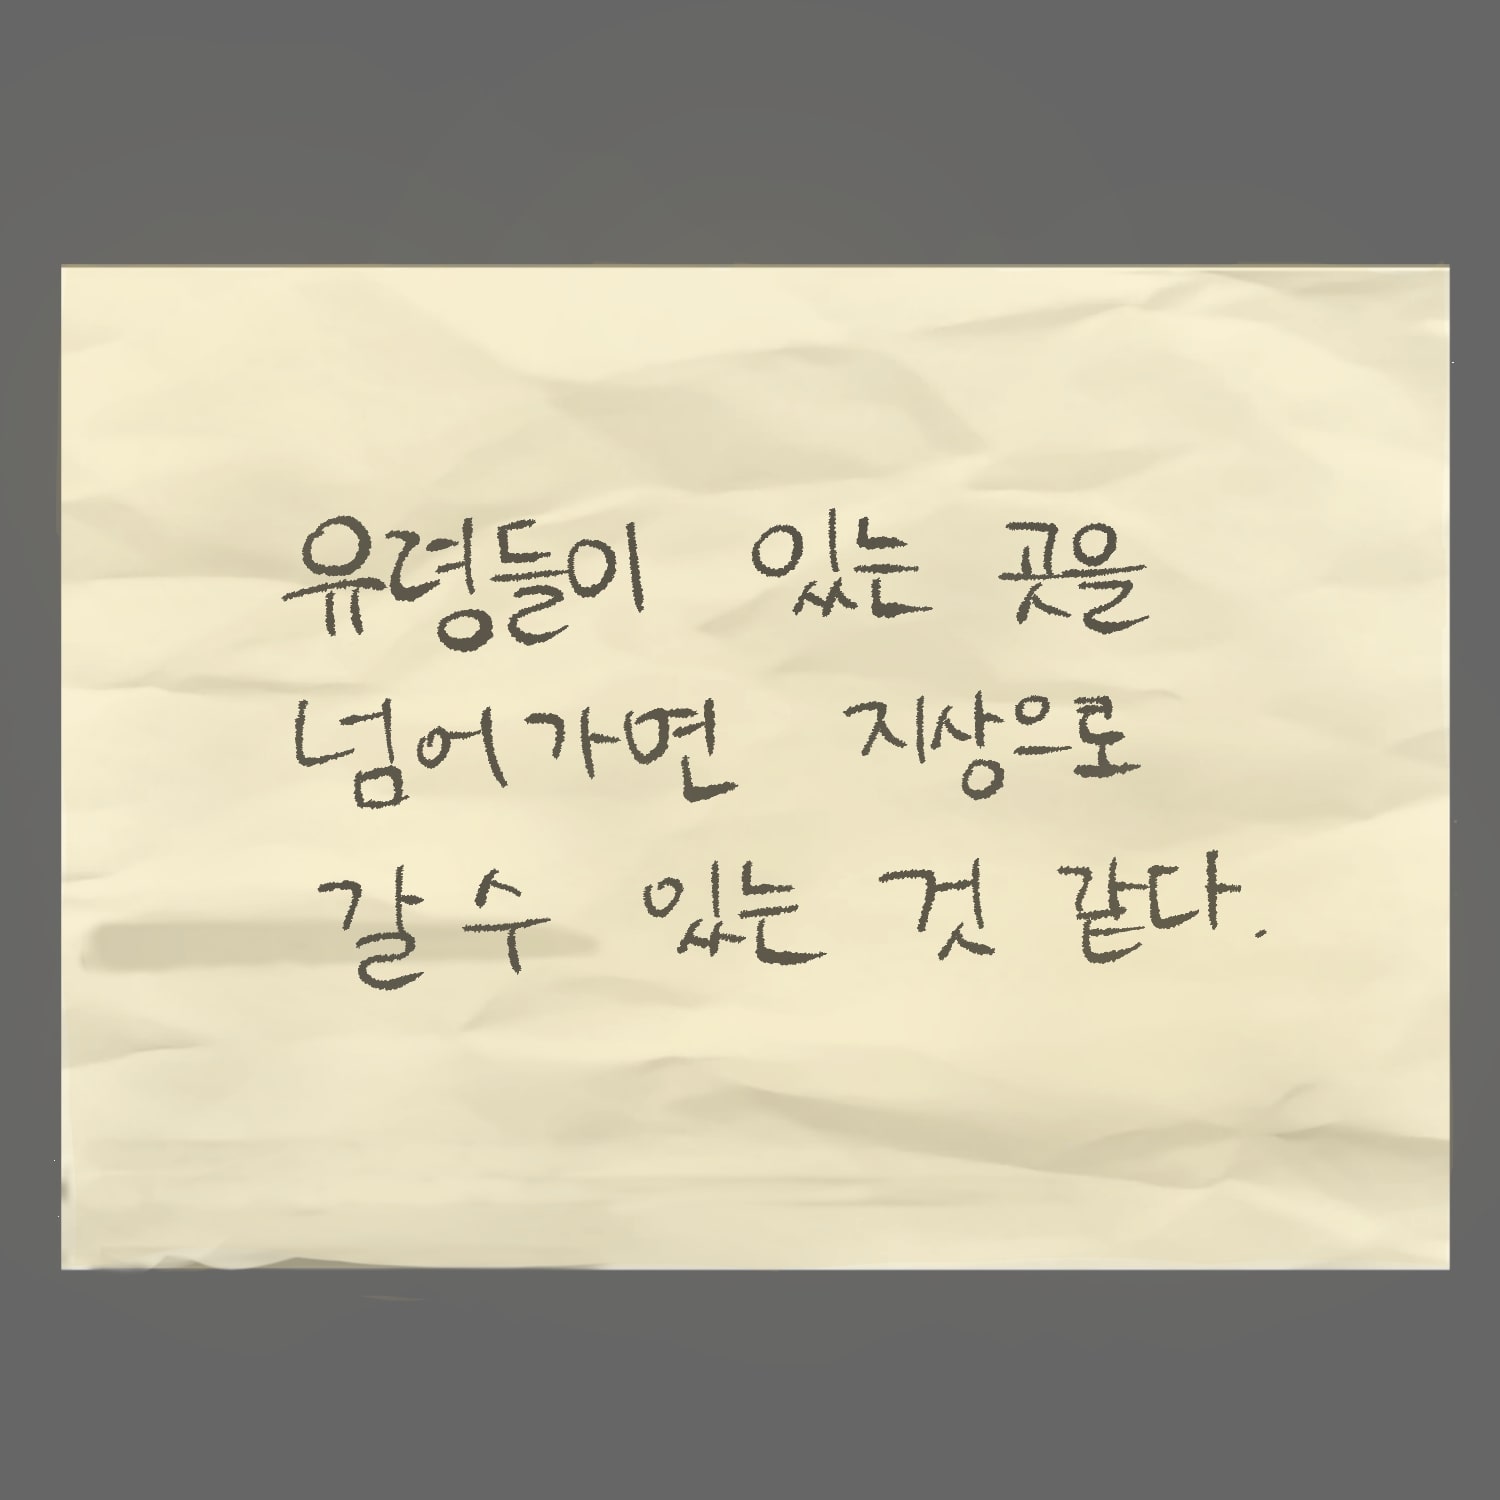 유령들이 있는 곳을
넘어가면 지상으로
갈 수 있는 것 같다.